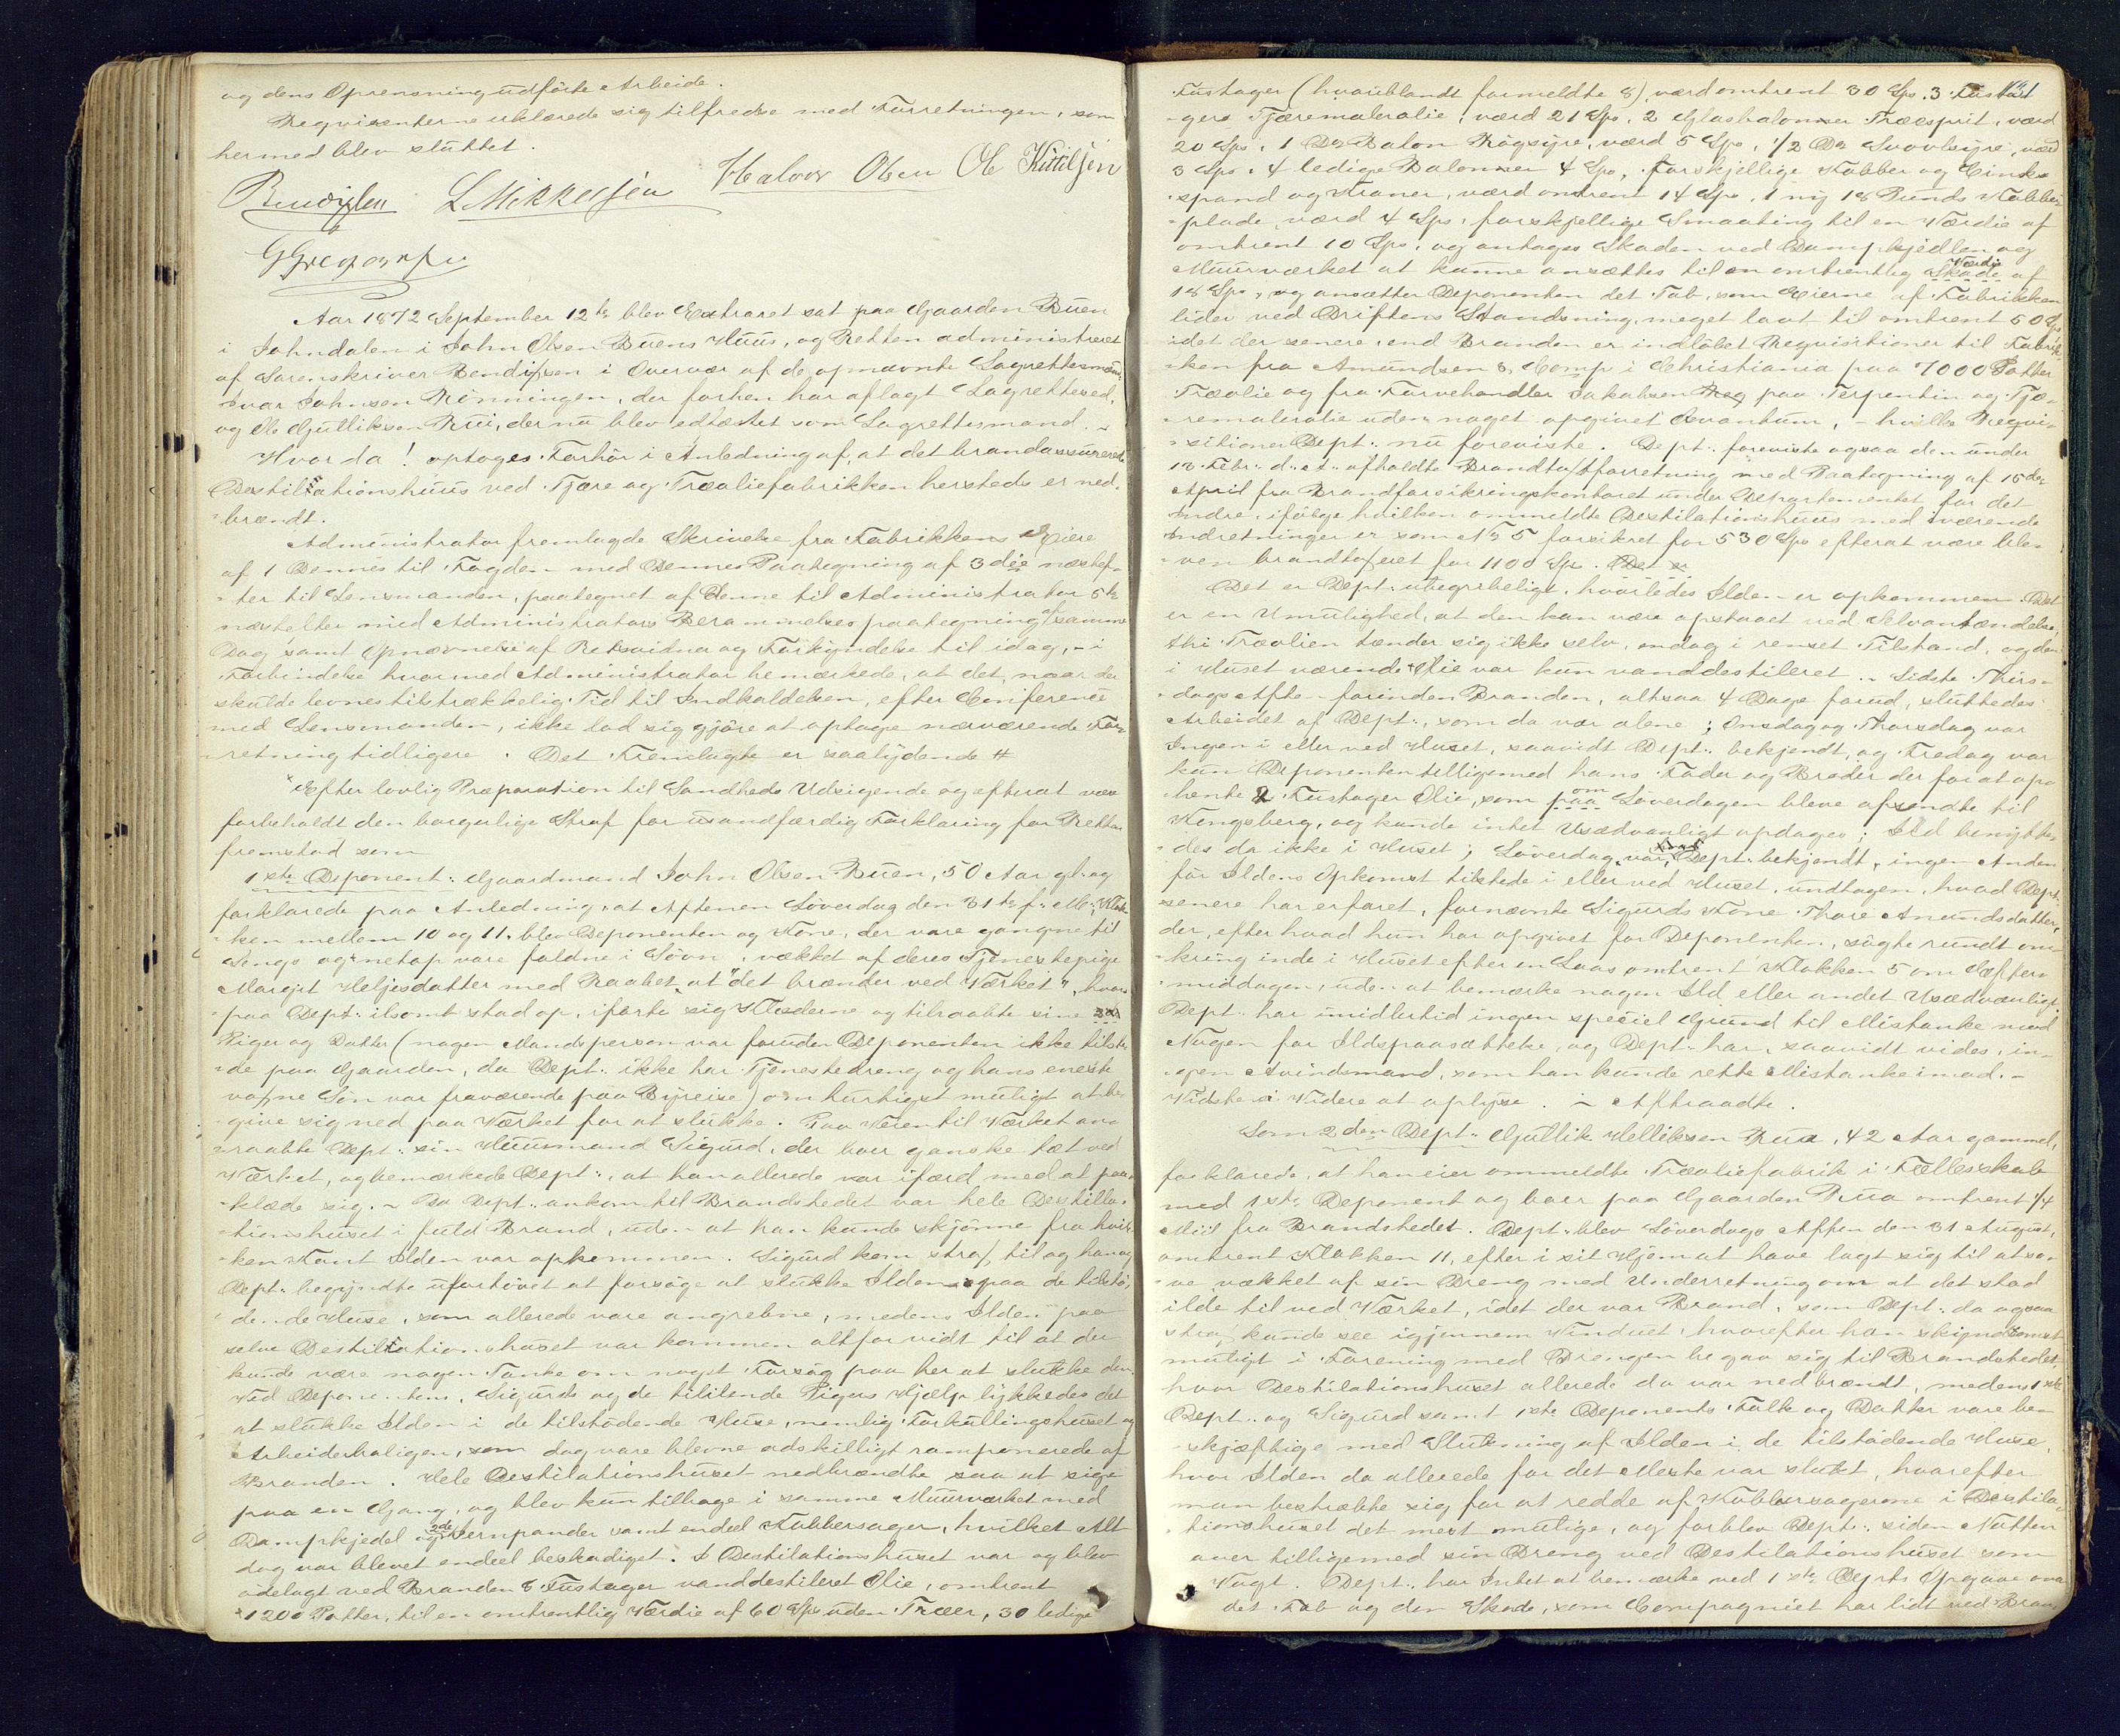 og dens Oprensning udførte Arbeide.
Reqvirenterne erklærede sig tilfredse med Forretningen, som
hermed blev sluttet.
Bendixsen L Mikkelsen Halvor Olsen Ole Kittilsen
G Gregersen
Aar 1872 September 12te blev Extraret sat paa Gaarden Buen
i Johndalen i John Olsen Buens Huus, og Retten administreret
af Sorenskriver Bendixsen i Overvær af de opnævnte Lagrettesmænd
Ivar Johnsen Rønningen, der forhen har aflagt Lagretteed,
og Ole Gutliksen Rui, der nu blev edfæstet som Lagrettesmand. -
Hvorda! optoges Forhør i Anledning af, at det brandassurerede
Destillationshuus ved Tjære og Træoliefabrikken hersteds er ned-
brændt.
Administrator fremlagde Skrivelse fra Fabrikkens Eiere
af 1 Dennes til Fogden med Dennes Paategning af 3die næstef-
ter til Lensmanden, paategnet af Denne til Administrator 5te
næstefter med Administrators Berammelses paategning af samme
Dag samt Opnævnelse af Retsvidner og Forkyndelse til idag, - i
Forbindelse hvormed Administrator bemærkede, at det, naar der
skulde levnes tilstrækkelig Tid til Indkaldelsen, efter Conference
med Lensmanden, ikke lod sig gjøre at optage nærværende For-
retning tidligere. Det Fremlagte er saalydende #
Efter lovlig Præparation til Sandheds Udsigende og efterat være
forbeholdt den borgerlige Straf for usandfærdig Forklaring for Retten
fremstod som
1ste Deponent: Gaardmand John Olsen Buen, 50 Aar gl. og
forklarede paa Anledning, at Aftenen Løverdag den 31te f: M:, Klok-
ken mellem 10 og 11, blev Deponenten og Kone, der vare gangne til
Sengs og netop vare faldne i Søvn, vækket af deres Tjenestepige
Margit Heljesdatter med Raabet, at "det brænder ved Værket", hvor-
paa Dept: ilsomt stod op, iførte sig Klæderne og tilraabte sine
Piger og Datter (nogen Mandsperson var foruden Deponenten ikke tilste-
de paa Gaarden, da Dept: ikke har Tjenestedreng og hans eneste
voxne Søn var fraværende paa Byreise) om hurtigst muligt at be-
give sig ned paa Værket for at slukke. Paa Veien til Værket an-
raabte Dept: sin Huusmand Sigurd, der boer ganske tæt ved
Værket, og bemærkede Dept:, at han allerede var ifærd med at paa-
klæde sig. - Da Dept: ankom til Brandstedet var hele Destilla-
tionshuset i fuld Brand, uden at han kunde skjønne fra hvil-
ken Kant Ilden var opkommen. Sigurd kom strax til og han og
Dept: begyndte ufortøvet at forsøge at slukke Ilden paa de tilstø-
dende Huse, som allerede vare angrebne, medens Ilden paa
selve Destillationshuset var kommen altfor vidt til at der
kunde være nogen Tanke om noget Forsøg paa her at slukke den.
Ved Deponentens, Sigurds og de tililende Pigers Hjælp lykkedes det
at slukke Ilden i de tilstødende Huse, nemlig Forkullingshuset og
Arbeiderboligen, som dog vare blevne adskilligt ramponerede af
Branden. Hele Destilationshuset nedbrændte saa at sige
paa en Gang, og blev kun tilbage i samme Muurværket med
Dampkjedel og 2de Jernpander samt endeel Kobbersager, hvilket Alt
dog var blevet endeel beskadiget. I Destilationshuset var og blev
ødelagt ved Branden 8 Fustager vanddestileret Olie, omtrent
1200 Potter, til en omtrentlig Værdie af 60 Spd uden Træer, 30 ledige
Fustager (hvoriblandt formeldte 8) værd omtrent 30 Spd. 3 Fusta-
gers Tjæremaleralie, værd 21 Spd, 2 Glasbalonner Træesprit, værd
20 Spd, 1 Do Balon Røgsyre, værd 5 Spd, 1/2 Do Svovlsyre, værd
3 Spd. 4 ledige Balonner 4 Spd, forskjellige Kobber og Zink-
spand og Kraner, værd omtrent 14 Spd, 1 ny 18 Punds Kobber-
plade, værd 4 Spd, forskjellige Smaating til en Værdie af
omtrent 10 Spd, og antages Skaden ved Dampkjedlen og
Muurværket at kunne ansættes til en omtrentlig Skade Værdie af
18 Spd, og ansætter Deponenten det Tab, som Eierne af Fabrikken
lider ved Driftens Standsning, meget lavt til omtrent 50 Spd
idet der senere, end Branden er indløbet Reqvisitioner til Fabrik-
ken fra Amundsen & Comp i Christiania paa 7000 Potter
Træolie og fra Farvehandler Jakobsen paa Terpentin og Tjæ-
remaleralie uden noget opgivet Qvantum, - hvilke Reqvi-
sitioner Dept: nu foreviste. Dept: foreviste ogsaa den under
13 Febr: d: A: afholdte Brandtaxtforretning med Paategning af 15de
April fra Brandforsikringskontoret under Departementet for det
Indre, ifølge hvilken ommeldte Destilationshuus med iværende
Indretninger er som No 5 forsikret for 530 Spd efterat være ble-
ven brandtaxeret for 1100 Spd. Det er
Det er Dept: ubegribeligt, hvorledes Ilden er opkommen. Det
er en Umulighed, at den kan være opstaaet ved Selvantændelse,
thi Træolien tænder sig ikke selv, endog i renset Tilstand, og den
i Huset værende Olie var kun vanddestileret. - Sidste Tirs-
dags Aften forinden Branden, altsaa 4 Dage forud, sluttedes
Arbeidet af Dept:, som da var alene; Onsdag og Thorsdag var
Ingen i eller ved Huset, saavidt Dept: bekjendt, og Fredag var
kun Deponenten tilligemed hans Fader og Broder der for at op-
hente 2 Fustager Olie, som paa om Løverdagen bleve afsendte til
Kongsberg, og kunde intet Usædvanligt opdages; Ild benytte-
des da ikke i Huset; Løverdag var, Dept: bekjendt, ingen Anden
før Ildens Opkomst tilstede i eller ved Huset, undtagen, hvad Dept:
senere har erfaret, fornævnte Sigurds Kone Thore Anundsdatter,
der, efter hvad hun har opgivet for Deponenten, søgte rundt om-
kring inde i Huset efter en Laas omtrent Klokken 5 om Efter-
middagen, uden at bemærke nogen Ild eller andet Usædvanligt
Dept: har imidlertid ingen speciel Grund til Mistanke mod
Nogen for Ildspaasættelse, og Dept: har, saavidt vides, in-
gen Avindsmand, som han kunde rette Mistanke imod. -
Vidste ei Videre at oplyse. - Aftraadte.
Som 2den Dept: Gutlik Helliksen Rua, 42 Aar gammel,
forklarede, at han eier ommeldte Træoliefabrik i Fællesskab
med 1ste Deponent og boer paa Gaarden Rua omtrent 1/4
Miil fra Brandstedet. Dept: blev Løverdags Aften den 31 August,
omtrent Klokken 11, efter i sit Hjem at have lagt sig til at so-
ve, vækket af sin Dreng med Underretning om at det stod
ilde til ved Værket, idet der var Brand, som Dept: da ogsaa
strax kunde see igjennem Vinduet, hvorefter han skyndsomst
muligt i Forening med Drengen begav sig til Brandstedet,
hvor Destilationshuset allerede da var nedbrændt, medens 1ste
Dept: og Sigurd samt 1ste Deponents Folk og Datter vare be-
skjæftige med Slukning af Ilden i de tilstødende Huse,
hvor Ilden da allerede for det Meste var slukt, hvorefter
man bestræbte sig for at redde af Kobbersagerne i Destila-
tionshuset det mest mulige, og forblev Dept: siden Natten
over tilligemed sin Dreng ved Destilationshuset som
Vagt. Dept: har Intet at bemærke ved 1ste Depts Opgave over
det Tab og den Skade, som Compagniet har lidt ved Bran-